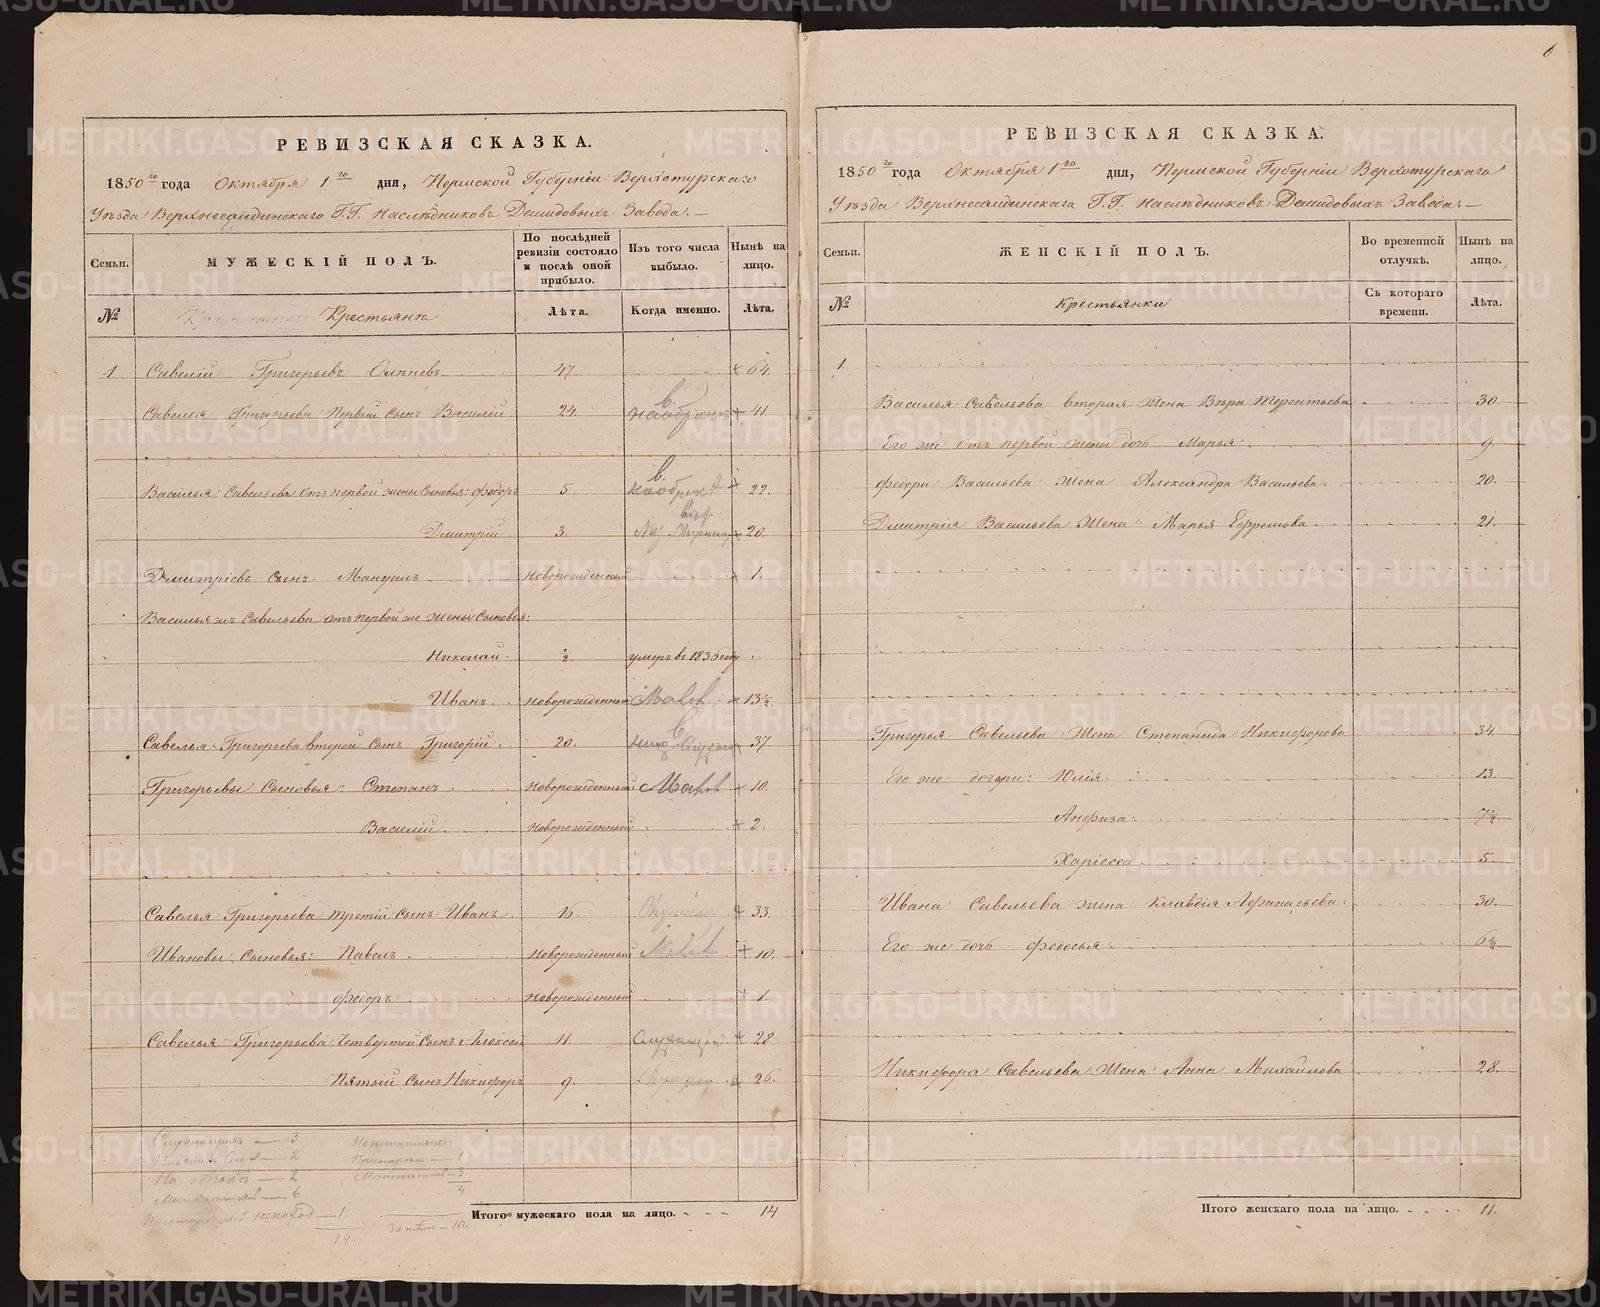 6
РЕВИЗСКАЯ СКАЗКА.
1850го года Октября 1го дня, Пермской Губерніи Верхотурскаго
Уѣзда Верхнесалдинскаго Г.Г. Наслѣдниковъ Демидовыхъ Завода.—
Семьи.
МУЖЕСКІЙ ПОЛЪ.
По послѣдней ревизіи состояло и послѣ оной прибыло.
Изъ того числа выбыло.
Нынѣ на лицо.
№
Крестьяне
Лѣта.
Когда именно.
Лѣта.
1. Савелій Григорьевъ 47. 64.
Савелья Григорьева Первой Сынъ Василій 24. 41.
Василья Савельева отъ первой жены Сыновья: Федоръ 5. 22.
Дмитрій 3. 20.
Дмитріевъ Сынъ Мануилъ Новорожденный 1.
Василья жъ Савельева отъ первой же жены Сыновья:
Николай ½ умеръ въ 1836 году
Иванъ Новорожденный Малол. 13½
Савелья Григорьева второй Сынъ Григорій 20. 37.
Григорьевы Сыновья: Степанъ Новорожденный Малол. 10.
Василій Новорожденный 2.
Савелья Григорьева третій Сынъ Иванъ 16. 33.
Ивановы Сыновья: Павелъ Новорожденный Малол. 10.
Федоръ Новорожденный 1.
Савелья Григорьева Четвертой Сынъ Алексей 11. Служащій 28
Пятый Сынъ Никифоръ 9. 26.
Служащихъ — 3
— 2
На — 2
Малолѣтковъ — 6
— 1.
14.
— 1
Малолѣтковъ — 3
4
— 10.
Итого мужескаго пола на лицо. 14
РЕВИЗСКАЯ СКАЗКА.
1850го года Октября 1го дня, Пермской Губерніи Верхотурскаго
Уѣзда Верхнесалдинскаго Г.Г. Наслѣдниковъ Демидовыхъ Завода.—
Семьи.
ЖЕНСКІЙ ПОЛЪ.
Во временной отлучкѣ.
Нынѣ на лицо.
№
Крестьянки
Съ котораго времени.
Лѣта.
1.
Василья Савельева вторая Жена Вѣра Терентьева 30.
Его же отъ первой жены дочь Марья 9.
Федора Васильева Жена Александра Васильева 20.
Дмитрія Васильева Жена Марья Ефремова 21.
Григорья Савельева Жена Степанида Никифорова 34.
Его же дочери: Юлія 13.
Анфиза 7½
Харіесса 5.
Ивана Савельева жена Клавдія Афанасьева 30.
Его же дочь Федосья 6½
Никифора Савельева Жена Анна Михайлова 28.
Итого женскаго пола на лицо. 11.
METRIKI.GASO-URAL.RU